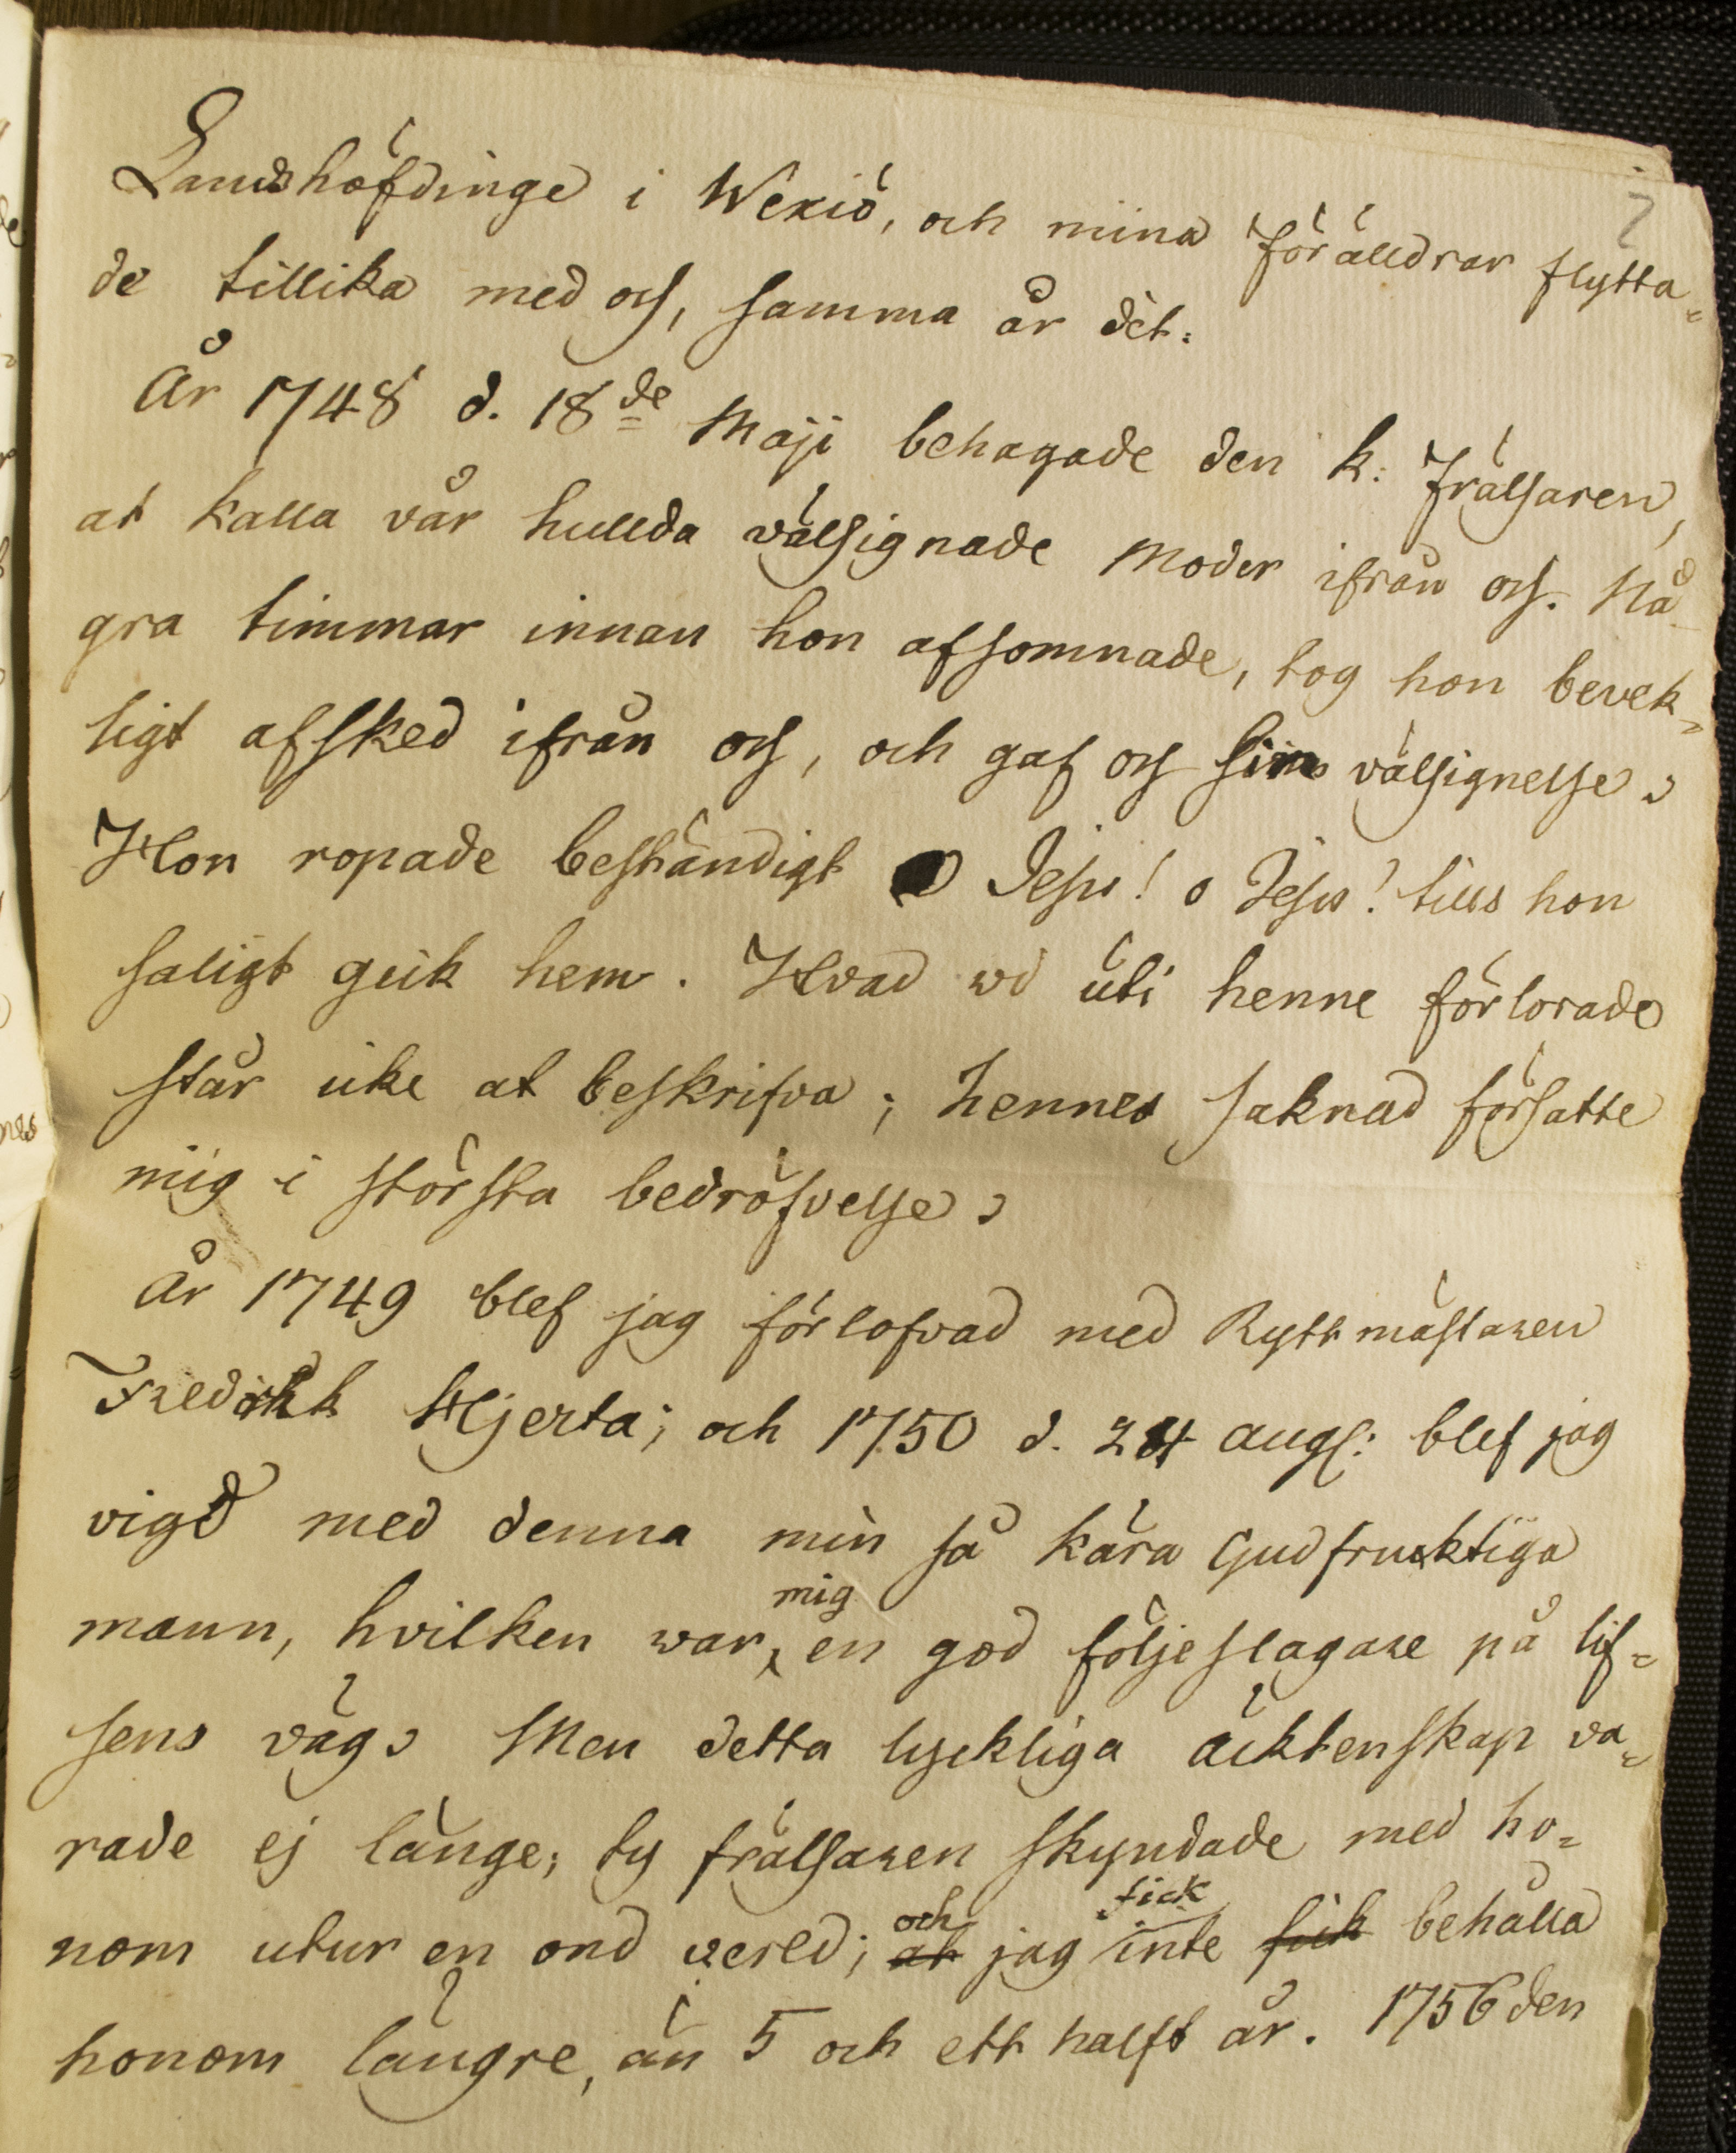 7
Landshöfdinge i Wexiö, och mina Föräldrar flytta=
de tillika med oss, samma år dit.
År 1748 d. 18de Maji behagade den k: Frälsaren,
at kalla vår hullda välsignade Moder ifrån oss. Nå=
gra timmar innan hon afsomnade, tog hon bevek=
ligt afsked ifrån oss, och gaf oss sin välsignelse.
Hon ropade beständigt O Jesu! o Jesu! tills hon
saligt geck hem. Hvad wi uti henne förlorade
står icke at beskrifva; hennes saknad försatte
mig i största bedröfvelse.
År 1749 blef jag förlofvad med Ryttmästaren
Fredrik Hjerta; och 1750 d. 24 augs: blef jag
vigd med denna min så kära Gudfrucktiga
mann, hvilken war mig en god följeslagare på lif=
sens väg. Men detta lyckliga äcktenskap va=
rade ej länge; ty frälsaren skyndade med ho=
nom utur en ond verld; at och jag fick inte fick behålla
honom längre, än 5 och ett halft år. 1756 den